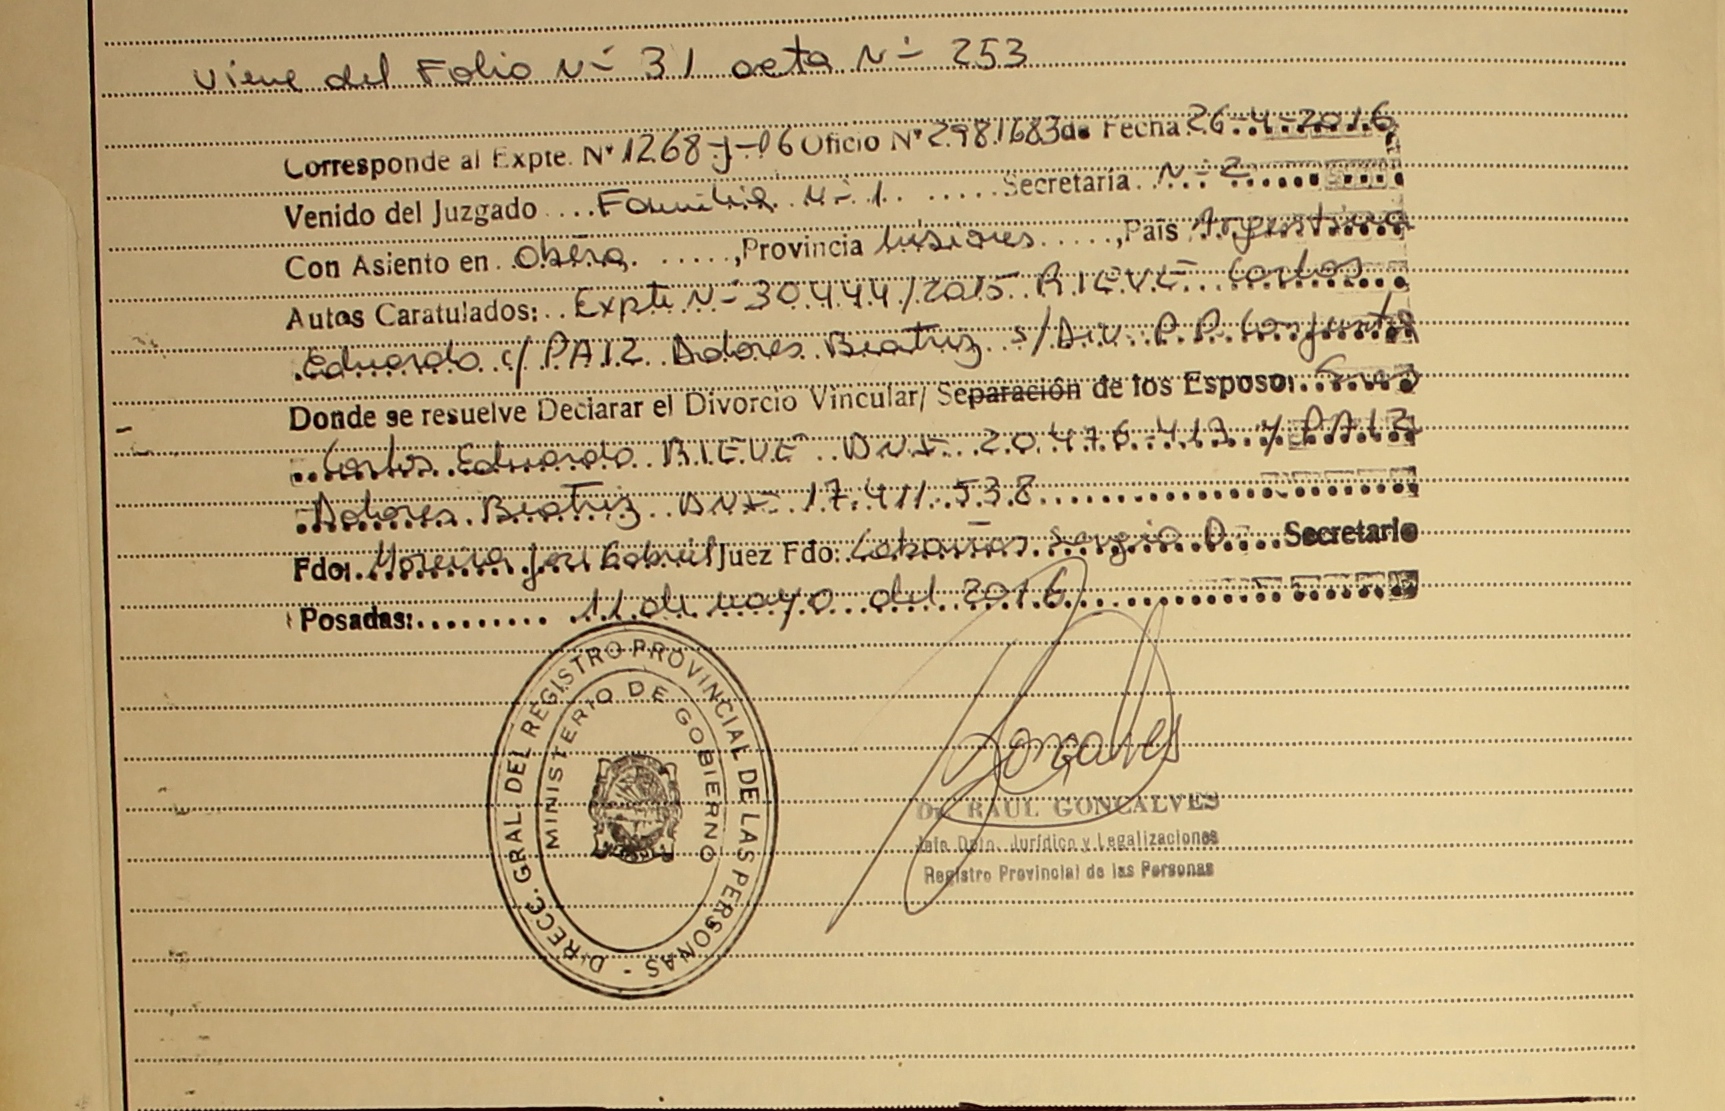 Viene del Folio N- 31 acta N- 253
Corresponde al Expte. N° 1268-J-06 Oficio N° 2981683 de Fecha 26-4-2016
Venido del Juzgado Familia N- 1 Secretaría N- 2
Con Asiento en Oberá ,Provincia Misiones ,País Argentina
Autos Caratulados: Expte N- 30444/2015 RIEVE Carlos
Eduardo c/ PAIZ Dolores Beatriz s/ Div. P.P. Conjunta
Donde se resuelve Declarar el Divorcio Vincular/ Separación de los Esposos
Carlos Eduardo RIEVE DNI 20.476.413 y PAIZ
Dolores Beatriz DNI 17.411.538
Fdo: José Gabriel Juez Fdo: Sergio D Secretario
Posadas: 11 de mayo del 2016
DIRECC. GRAL. DEL REGISTRO PROVINCIAL DE LAS PERSONAS -
MINISTERIO DE GOBIERNO
Goncalves
Dr. RAUL GONCALVES
Jefe Dpto. Jurídico y Legalizaciones
Registro Provincial de las Personas